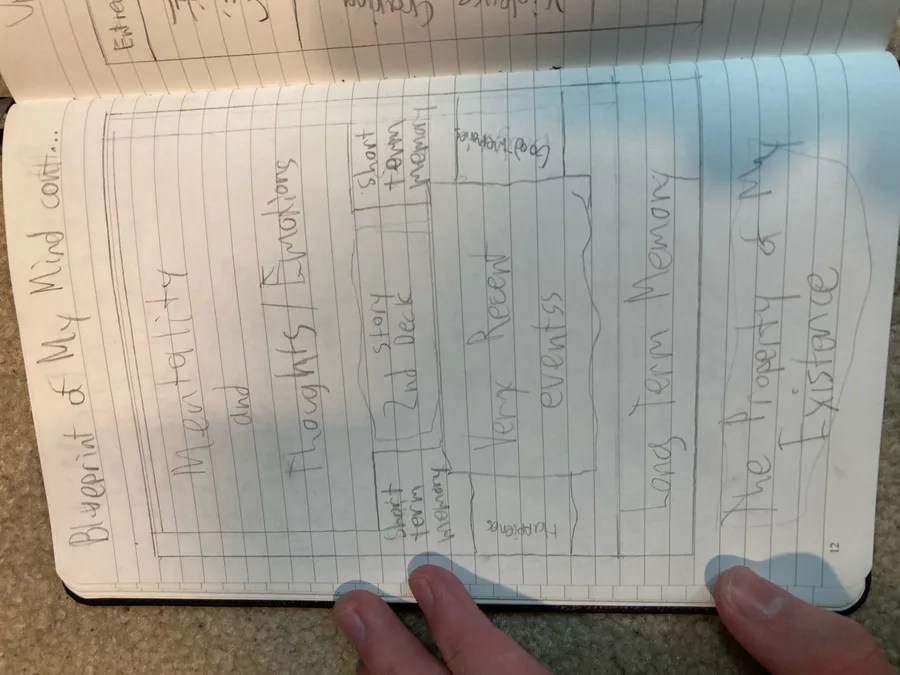 Blueprint of My Mind cont...
Mentality
and
Thoughts/Emotions
Short
term
memory
story
2nd Deck
Short
term
memory
Happienes
Very Recent
eventss
Good Memories
Long Term Memory
The Property of My
Existance
12
Entre